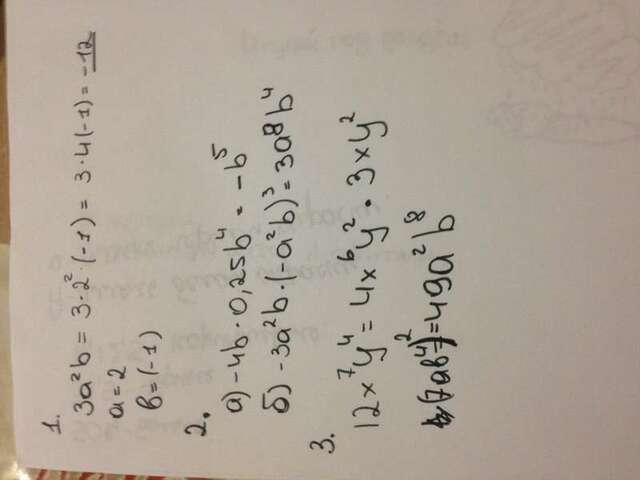 1.
3a²b = 3·2²·(-1) = 3·4(-1) = -12
a=2
b=(-1)
2.
а) -4b·0,25b⁴ = -b⁵
б) -3a²b·(-a²b)³ = 3a⁸b⁴
3.
12x⁷y⁴ = 4x⁶y² · 3xy²
(7ab⁴)² = 49a²b⁸